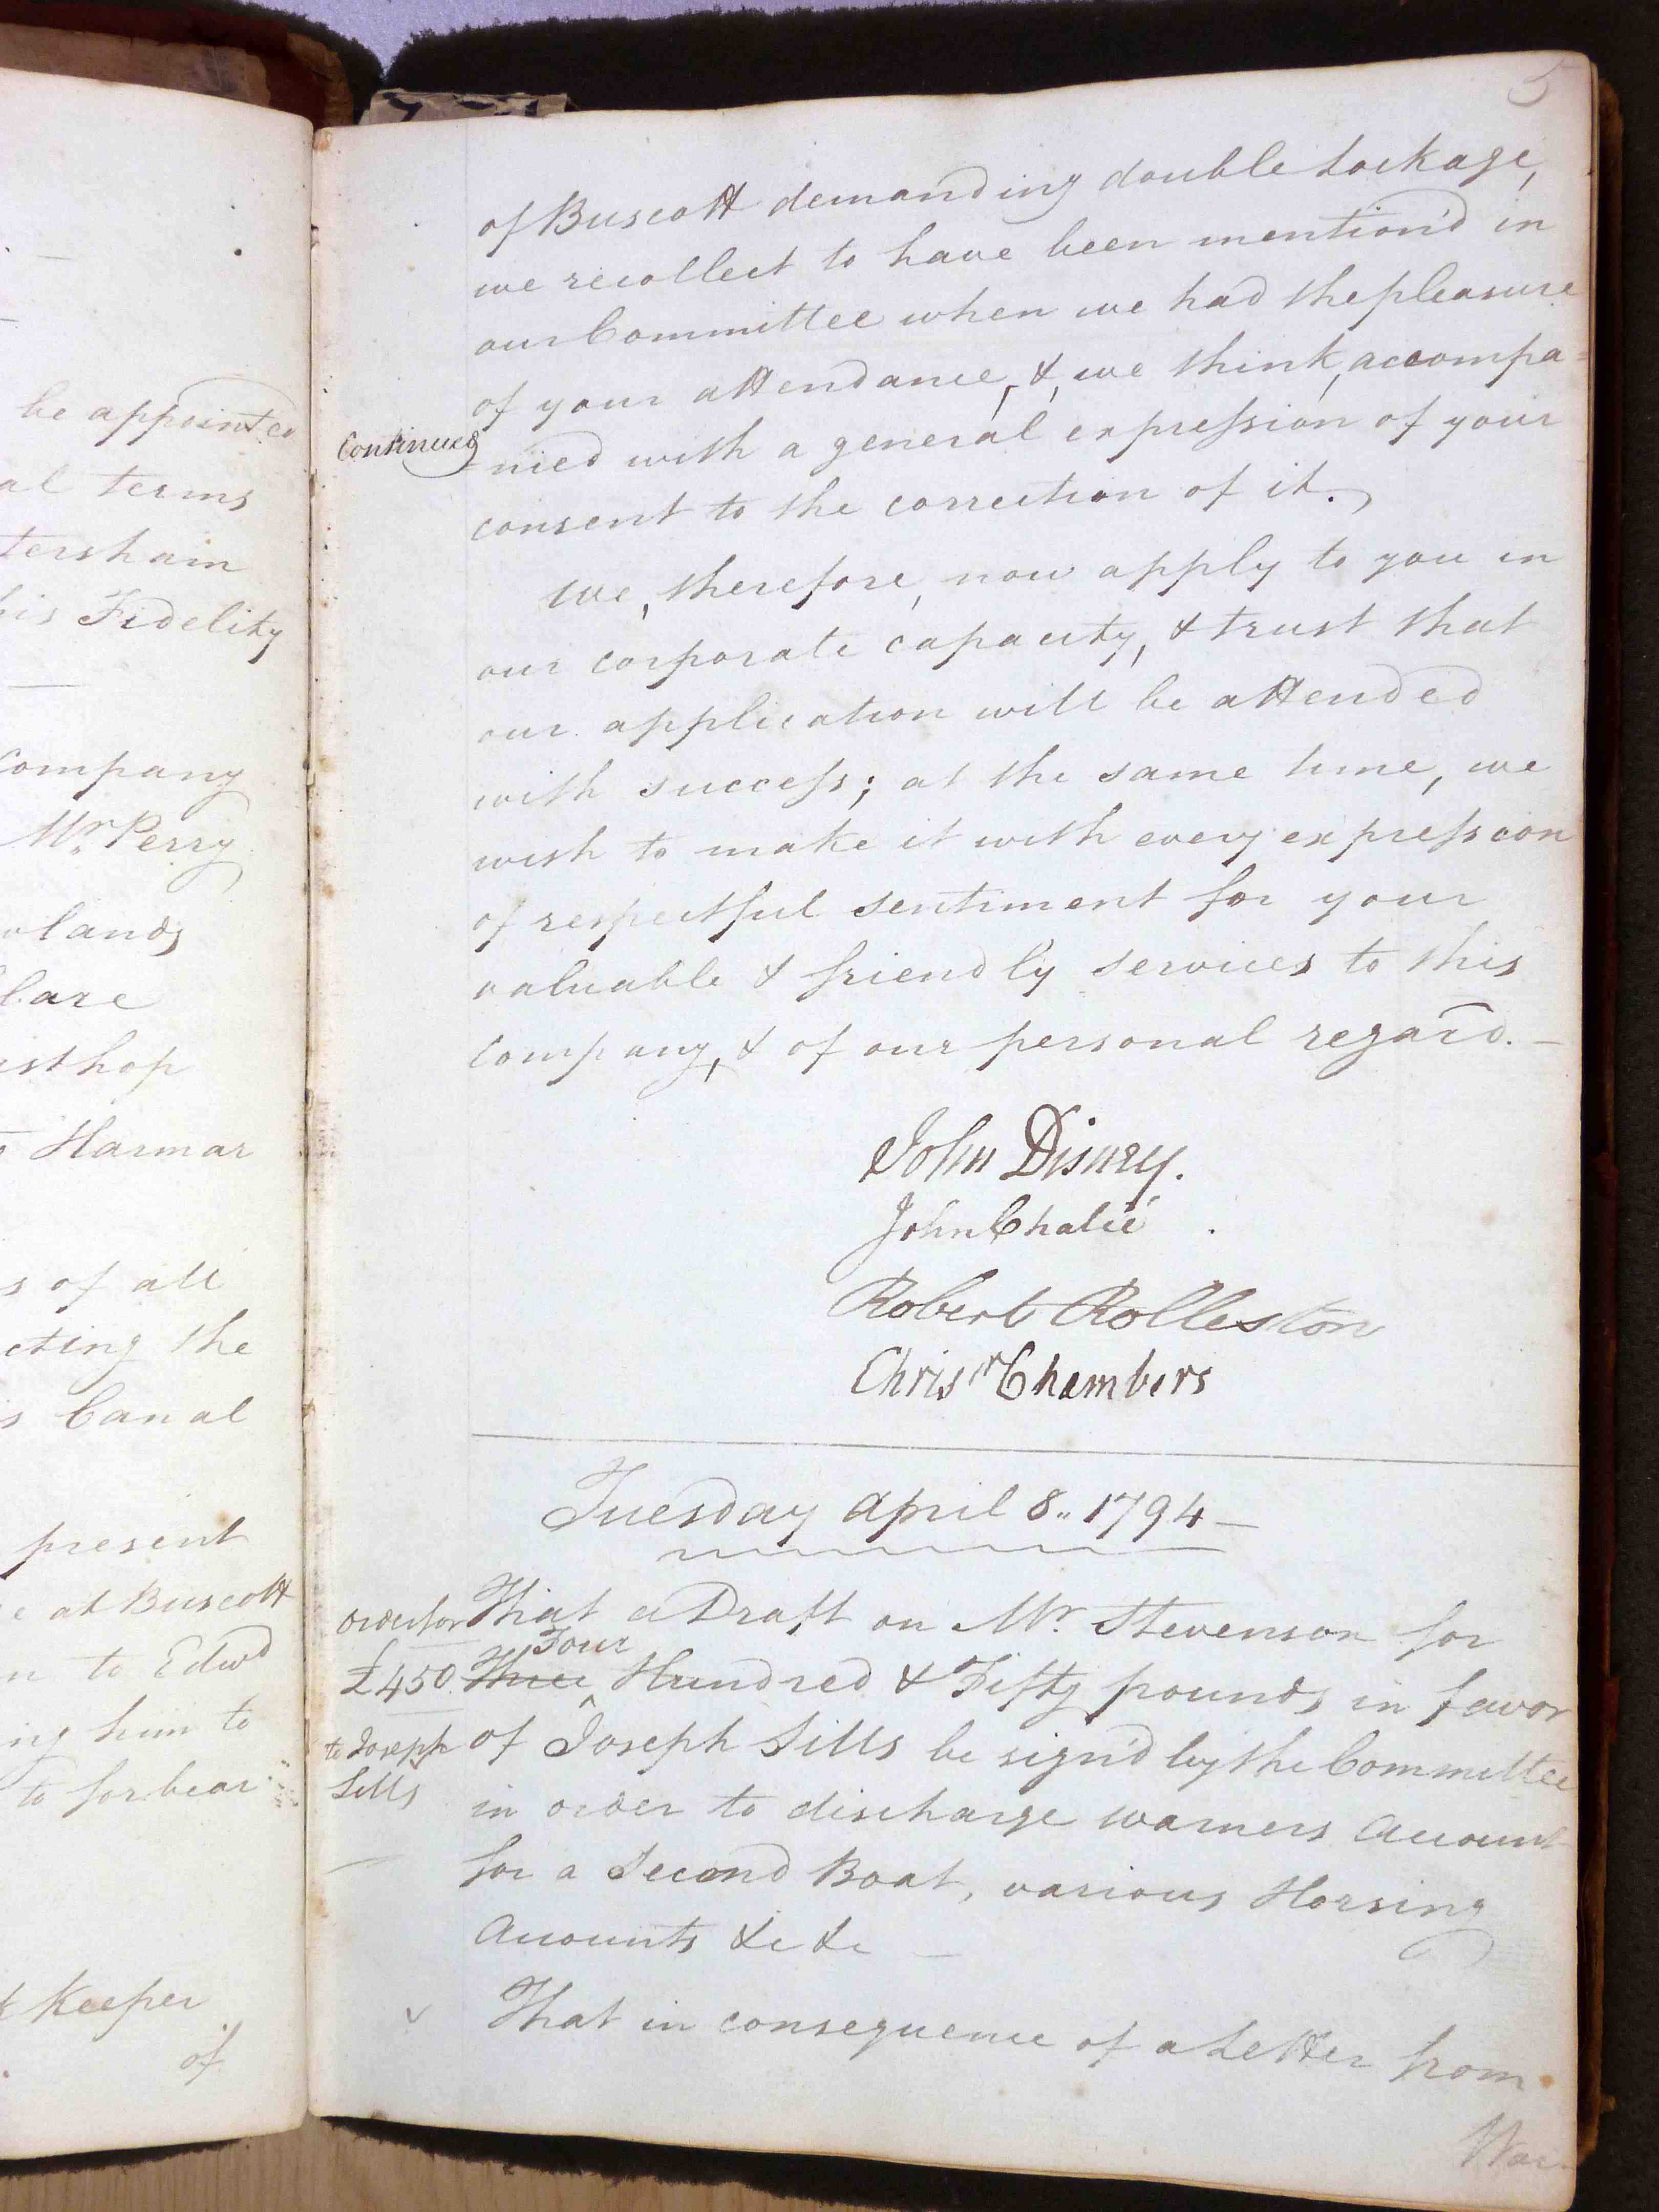 be appointed
al terms
tersham
his Fidelity
Company
Mr. Perry
lands
Care
isthop
Harmar
s of all
cting the
s Canal
present
e at Buscott
n to Edwd
ing him to
to forbear
k Keeper
of
5
of Buscott demanding double Lockage,
we recollect to have been mention'd in
our Committee when we had the pleasure
of your attendance, &, we think, accompa=
Continued
=nied with a general expression of your
consent to the correction of it.
We, therefore, now apply to you in
our corporate capacity, & trust that
our application will be attended
with success; at the same time, we
wish to make it with every expression
of respectful sentiment for your
valuable & friendly services to this
Company, & of our personal regard. —
John Disney.
John Chalié
Robert Rolleston
Chrisr Chambers
Tuesday April 8.. 1794 —
Order for
£450
to Joseph
Sills
That a Draft on Mr. Stevenson for
Three Four Hundred & Fifty pounds in favor
of Joseph Sills be sign'd by the Committee
in order to discharge Warners Account
for a Second Boat, various Horsing
Accounts &c &c —
That in consequence of a Letter from
War